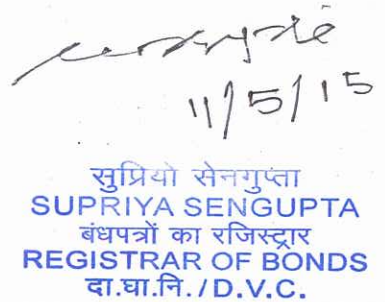 11/5/15
सुप्रियो सेनगुप्ता
SUPRIYA SENGUPTA
बंधपत्रों का रजिस्ट्रार
REGISTRAR OF BONDS
दा.घा.नि./D.V.C.